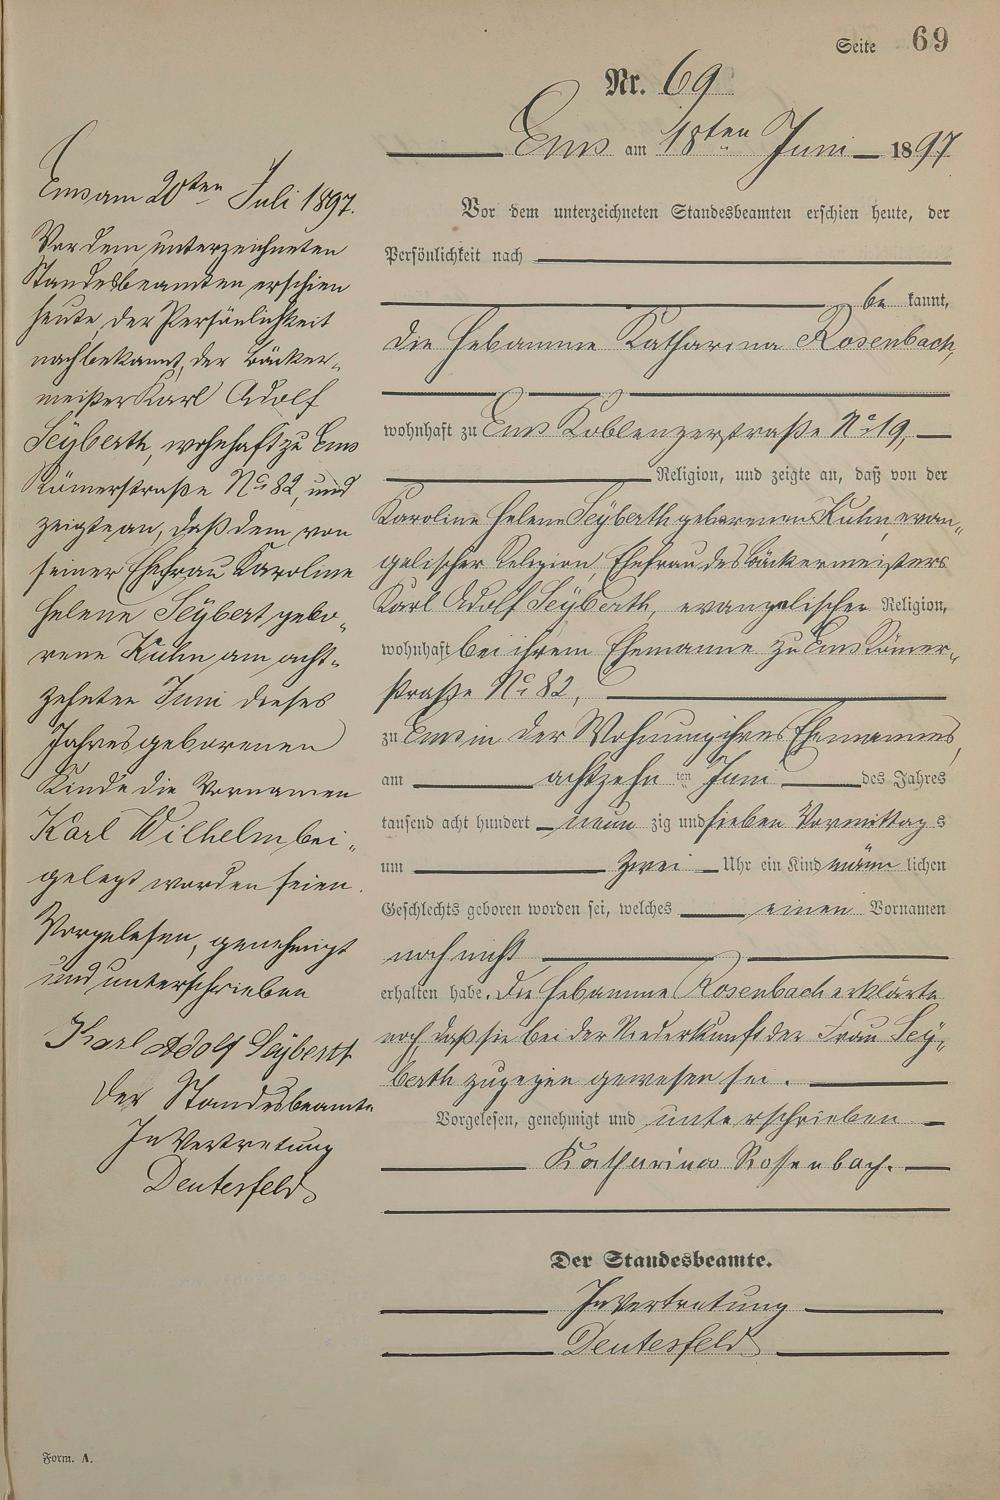 Seite 69
Nr. 69
Ems am 18ten Juni 1897
Vor dem unterzeichneten Standesbeamten erschien heute, der
Persönlichkeit nach
be kannt,
die Hebamme Katharina Rosenbach,
wohnhaft zu Ems Koblenzerstraße No 19,
Religion, und zeigte an, daß von der
Karoline Helene Seÿberth geborenen Kuhn, evan-
gelischer Religion, Ehefrau des Bäckermeisters
Karl Adolf Seÿberth, evangelischer Religion,
wohnhaft bei ihrem Ehemanne zu Ems Römer-
straße No 82,
zu Ems in der Wohnung ihres Ehemannes,
am achtzehn ten Juni des Jahres
tausend acht hundert neun zig und sieben Vormittag s
um zwei Uhr ein Kind männ lichen
Geschlechts geboren worden sei, welches einen Vornamen
noch nicht
erhalten habe. Die Hebamme Rosenbach erklärte
noch, daß sie bei der Niederkunft der Frau Seÿ-
berth zugegen gewesen sei.
Vorgelesen, genehmigt und unterschrieben
Katharina Rossenbach.
Der Standesbeamte.
In Vertretung
Deutesfeld
Ems am 20ten Juli 1897.
Vor dem unterzeichneten
Standesbeamten erschien
heute, der Persönlichkeit
nach bekannt, der Bäcker-
meister Karl Adolf
Seÿberth, wohnhaft zu Ems
Römerstraße No 82, und
zeigte an, daß dem von
seiner Ehefrau Karoline
Helene Seÿbert gebo-
rene Kuhn am acht-
zehnten Juni dieses
Jahres geborenen
Kinde die Vornamen
Karl Wilhelm bei-
gelegt worden seien.
Vorgelesen, genehmigt
und unterschrieben
Karl Adolf Seÿberth
Der Standesbeamte
In Vertretung
Deutesfeld
Form. A.